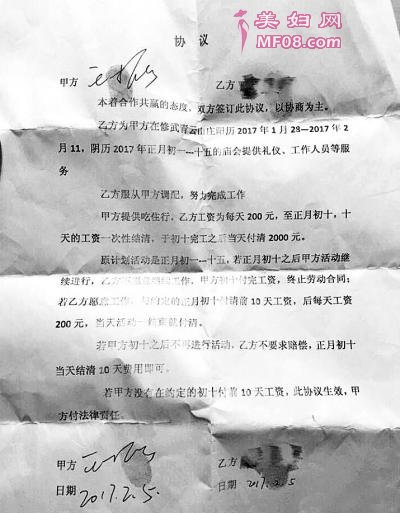 美妇网
MF08.com
协 议
甲方
乙方
本着合作共赢的态度，双方签订此协议，以协商为主。
乙方为甲方在修武青云山庄阳历 2017 年 1 月 28—2017 年 2
月 11，阴历 2017 年正月初一---十五的庙会提供礼仪、工作人员等服
务
乙方服从甲方调配，努力完成工作
甲方提供吃住行，乙方工资为每天 200 元，至正月初十，十
天的工资一次性结清，于初十完工之后当天付清 2000 元。
原计划活动是正月初一---十五，若正月初十之后甲方活动继
续进行，乙方不愿意继续工作，甲方初十付完工资，终止劳动合同；
若乙方愿意工作，与约定的正月初十付清前 10 天工资，后每天工资
200 元，当天活动一结束就付清。
若甲方初十之后不再进行活动，乙方不要求赔偿，正月初十
当天结清 10 天费用即可。
若甲方没有在约定的初十付前 10 天工资，此协议生效，甲
方付法律责任。
甲方
乙方
日期 2017.2.5.
日期 2017.2.5